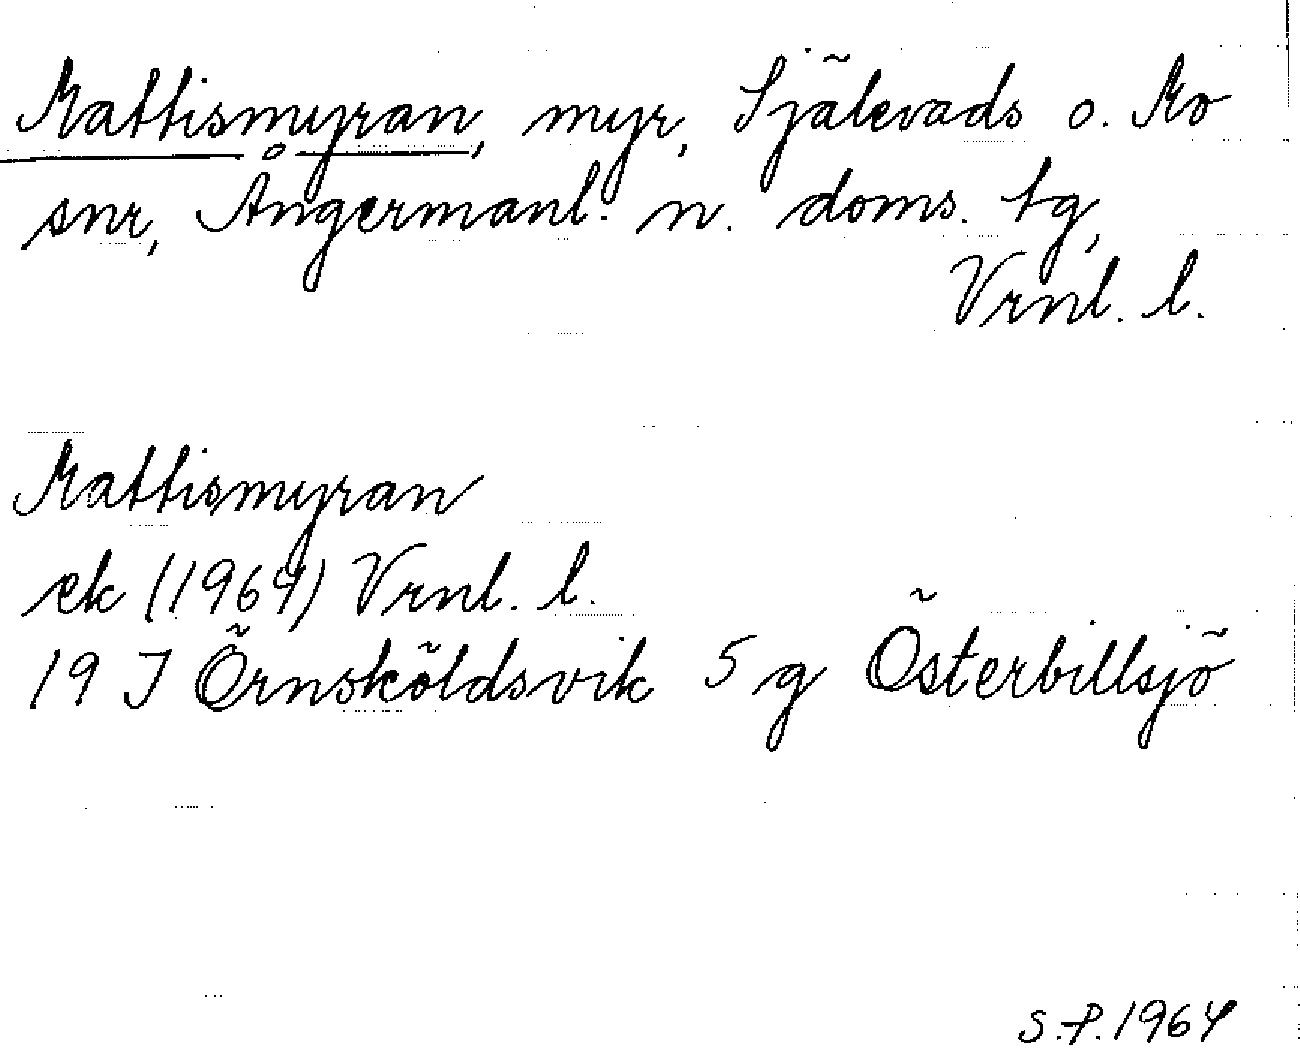 Mattismyran, myr, Själevads o. Mo
snr, Ångermanl. n. doms. tg,
Vrnl. l.
Mattismyran
ek (1964) Vrnl. l.
19 J Örnsköldsvik 5 g Österbillsjö
S.P. 1964